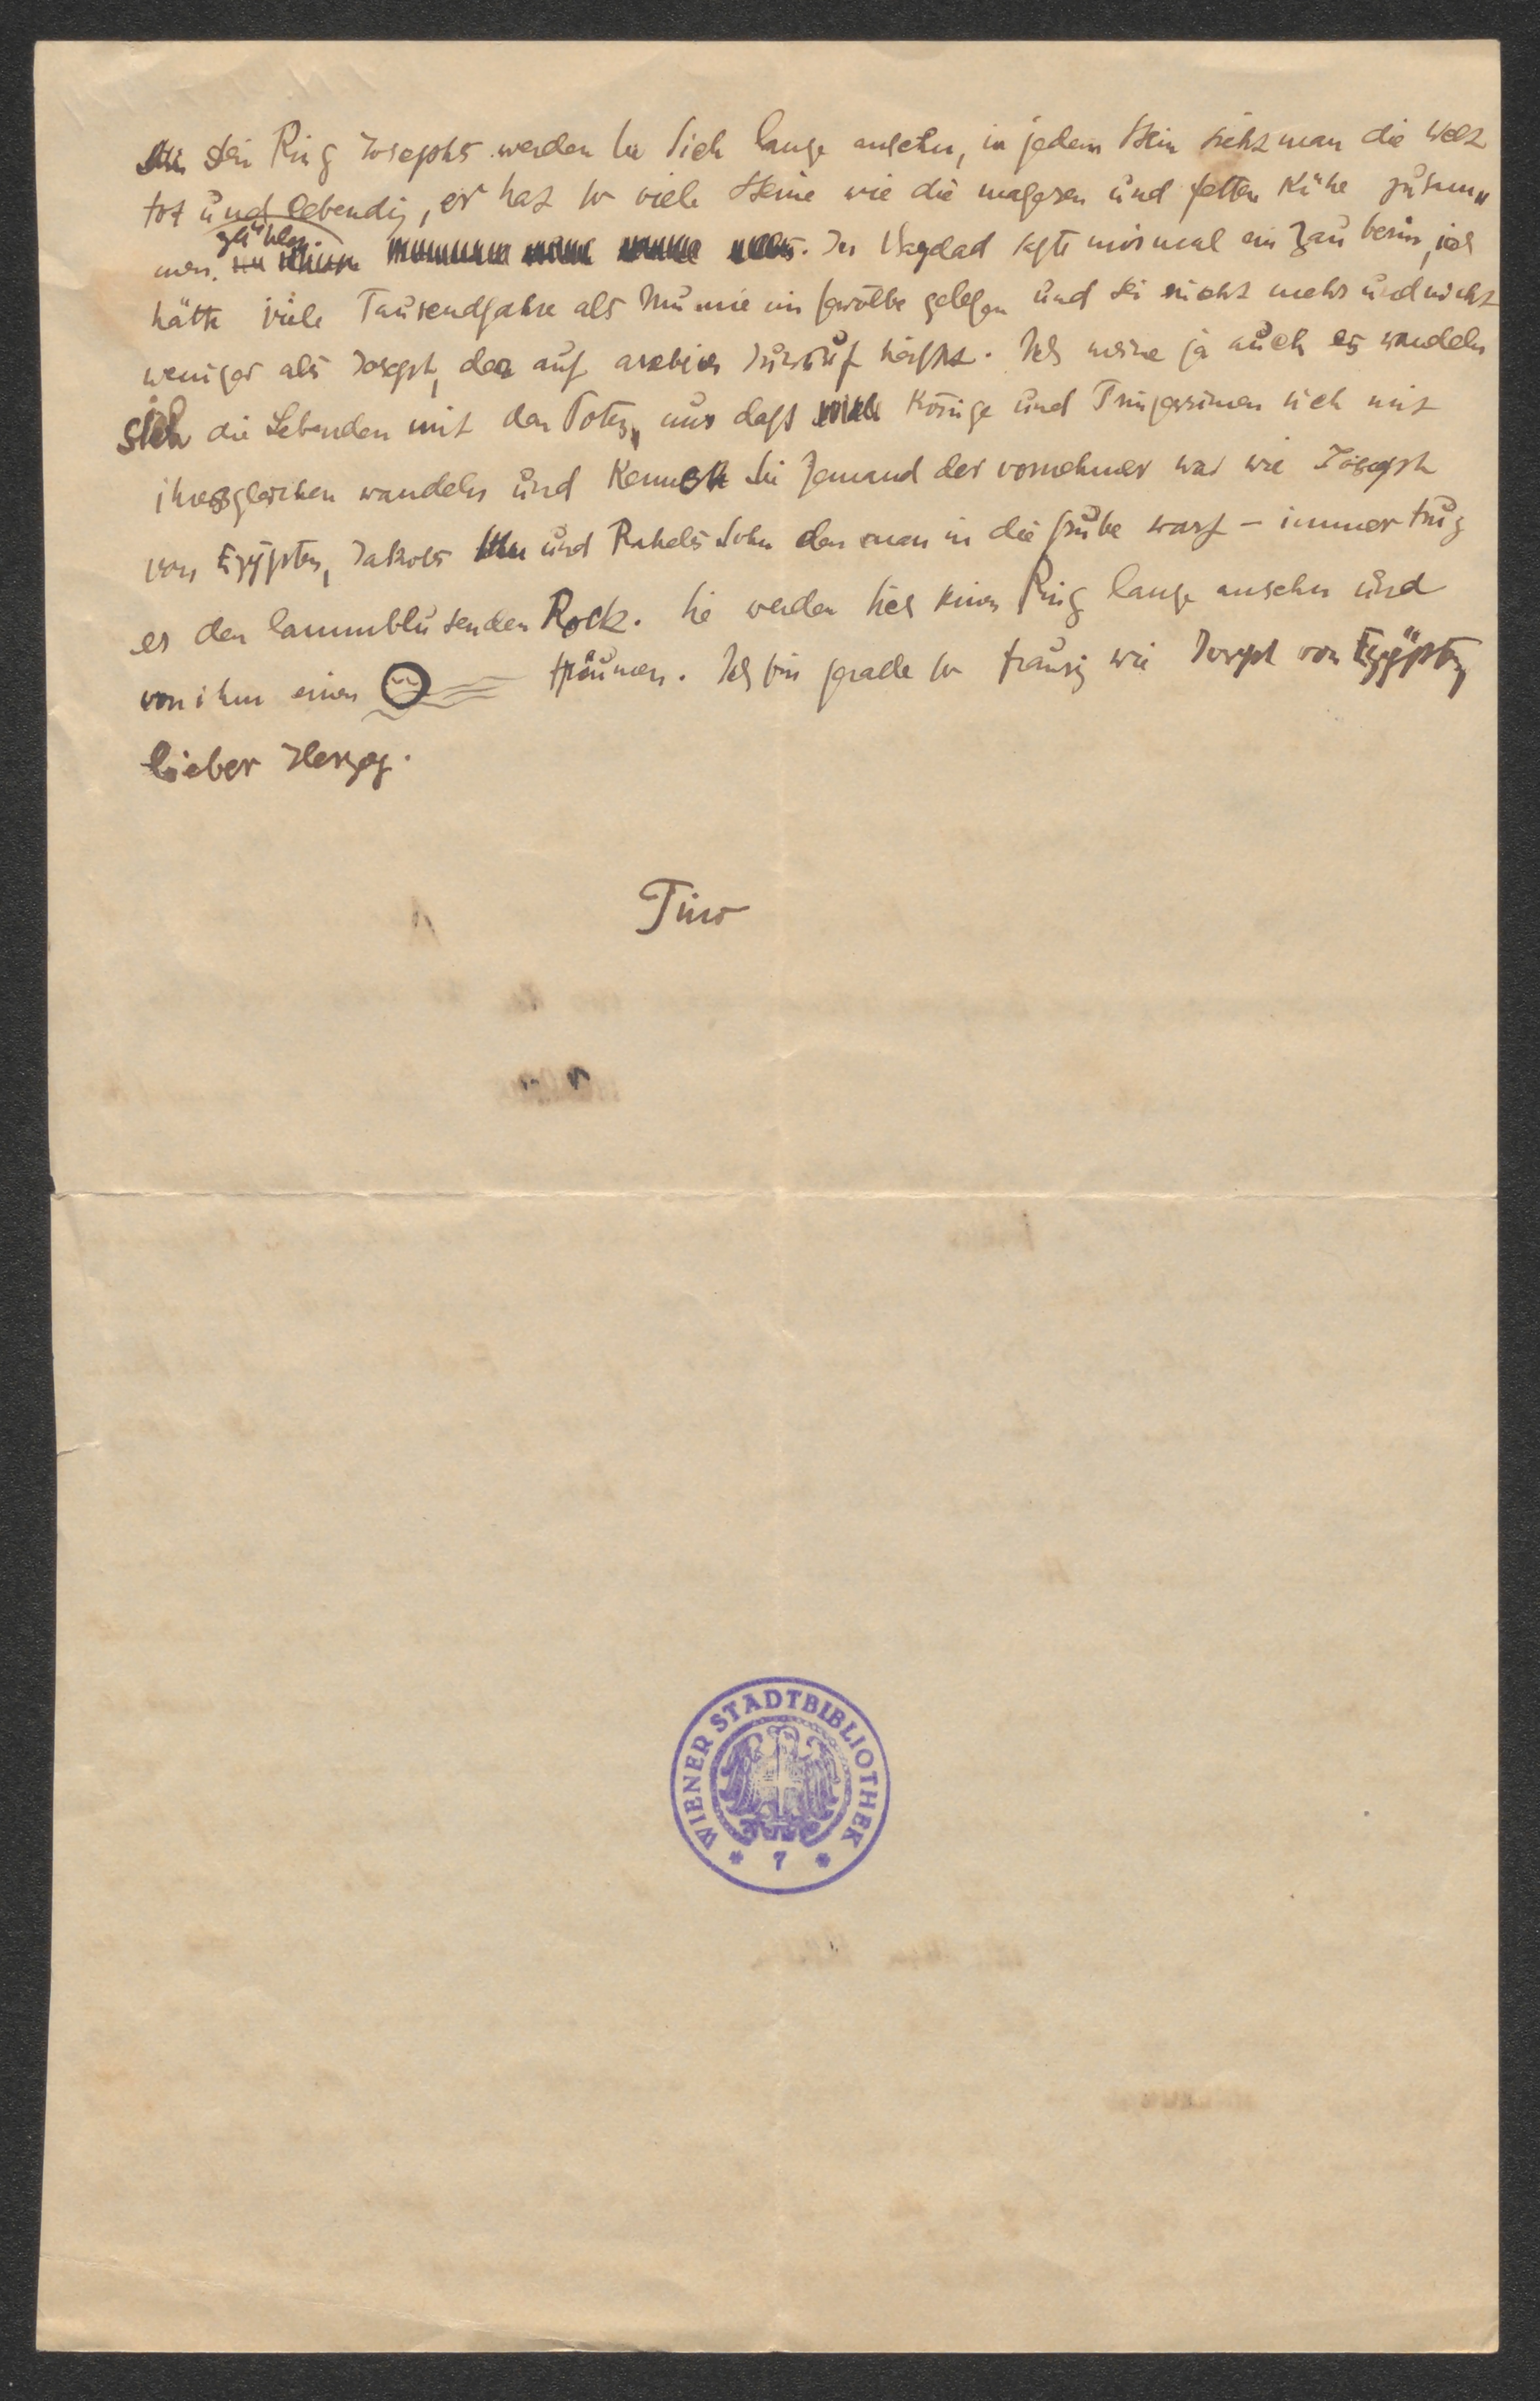 Den Ring Josephs werden Sie sich lange ansehn, in jedem Stein sieht man die Welt
tot und lebendig, er hat so viele Steine wie die mageren und fetten Kühe zusam„
zählen.
men. In Bagdad sagte mir mal ein Zauberer, ich
hätte viele Tausendjahre als Mumie im Gewölbe gelegen und sei nicht mehr und nicht
weniger als Joseph, der auf arabisch Jussuf heißt. Ich meine ja auch es wandeln
sich die Lebenden mit den Toten, nur daß Könige und Prinzessinen sich mit
ihresgleichen wandeln und kennen Sie Jemand der vornehmer war wie Joseph
von Egypten, Jakobs und Rahels Sohn den man in die Grube warf – immer trug
er den lammblutenden Rock. Sie werden sich seinen Ring lange ansehn und
von ihm einen träumen. Ich bin gerade so traurig wie Joseph von Egypten
lieber Herzog.
Tino
WIENER STADTBIBLIOTHEK
* 7 *